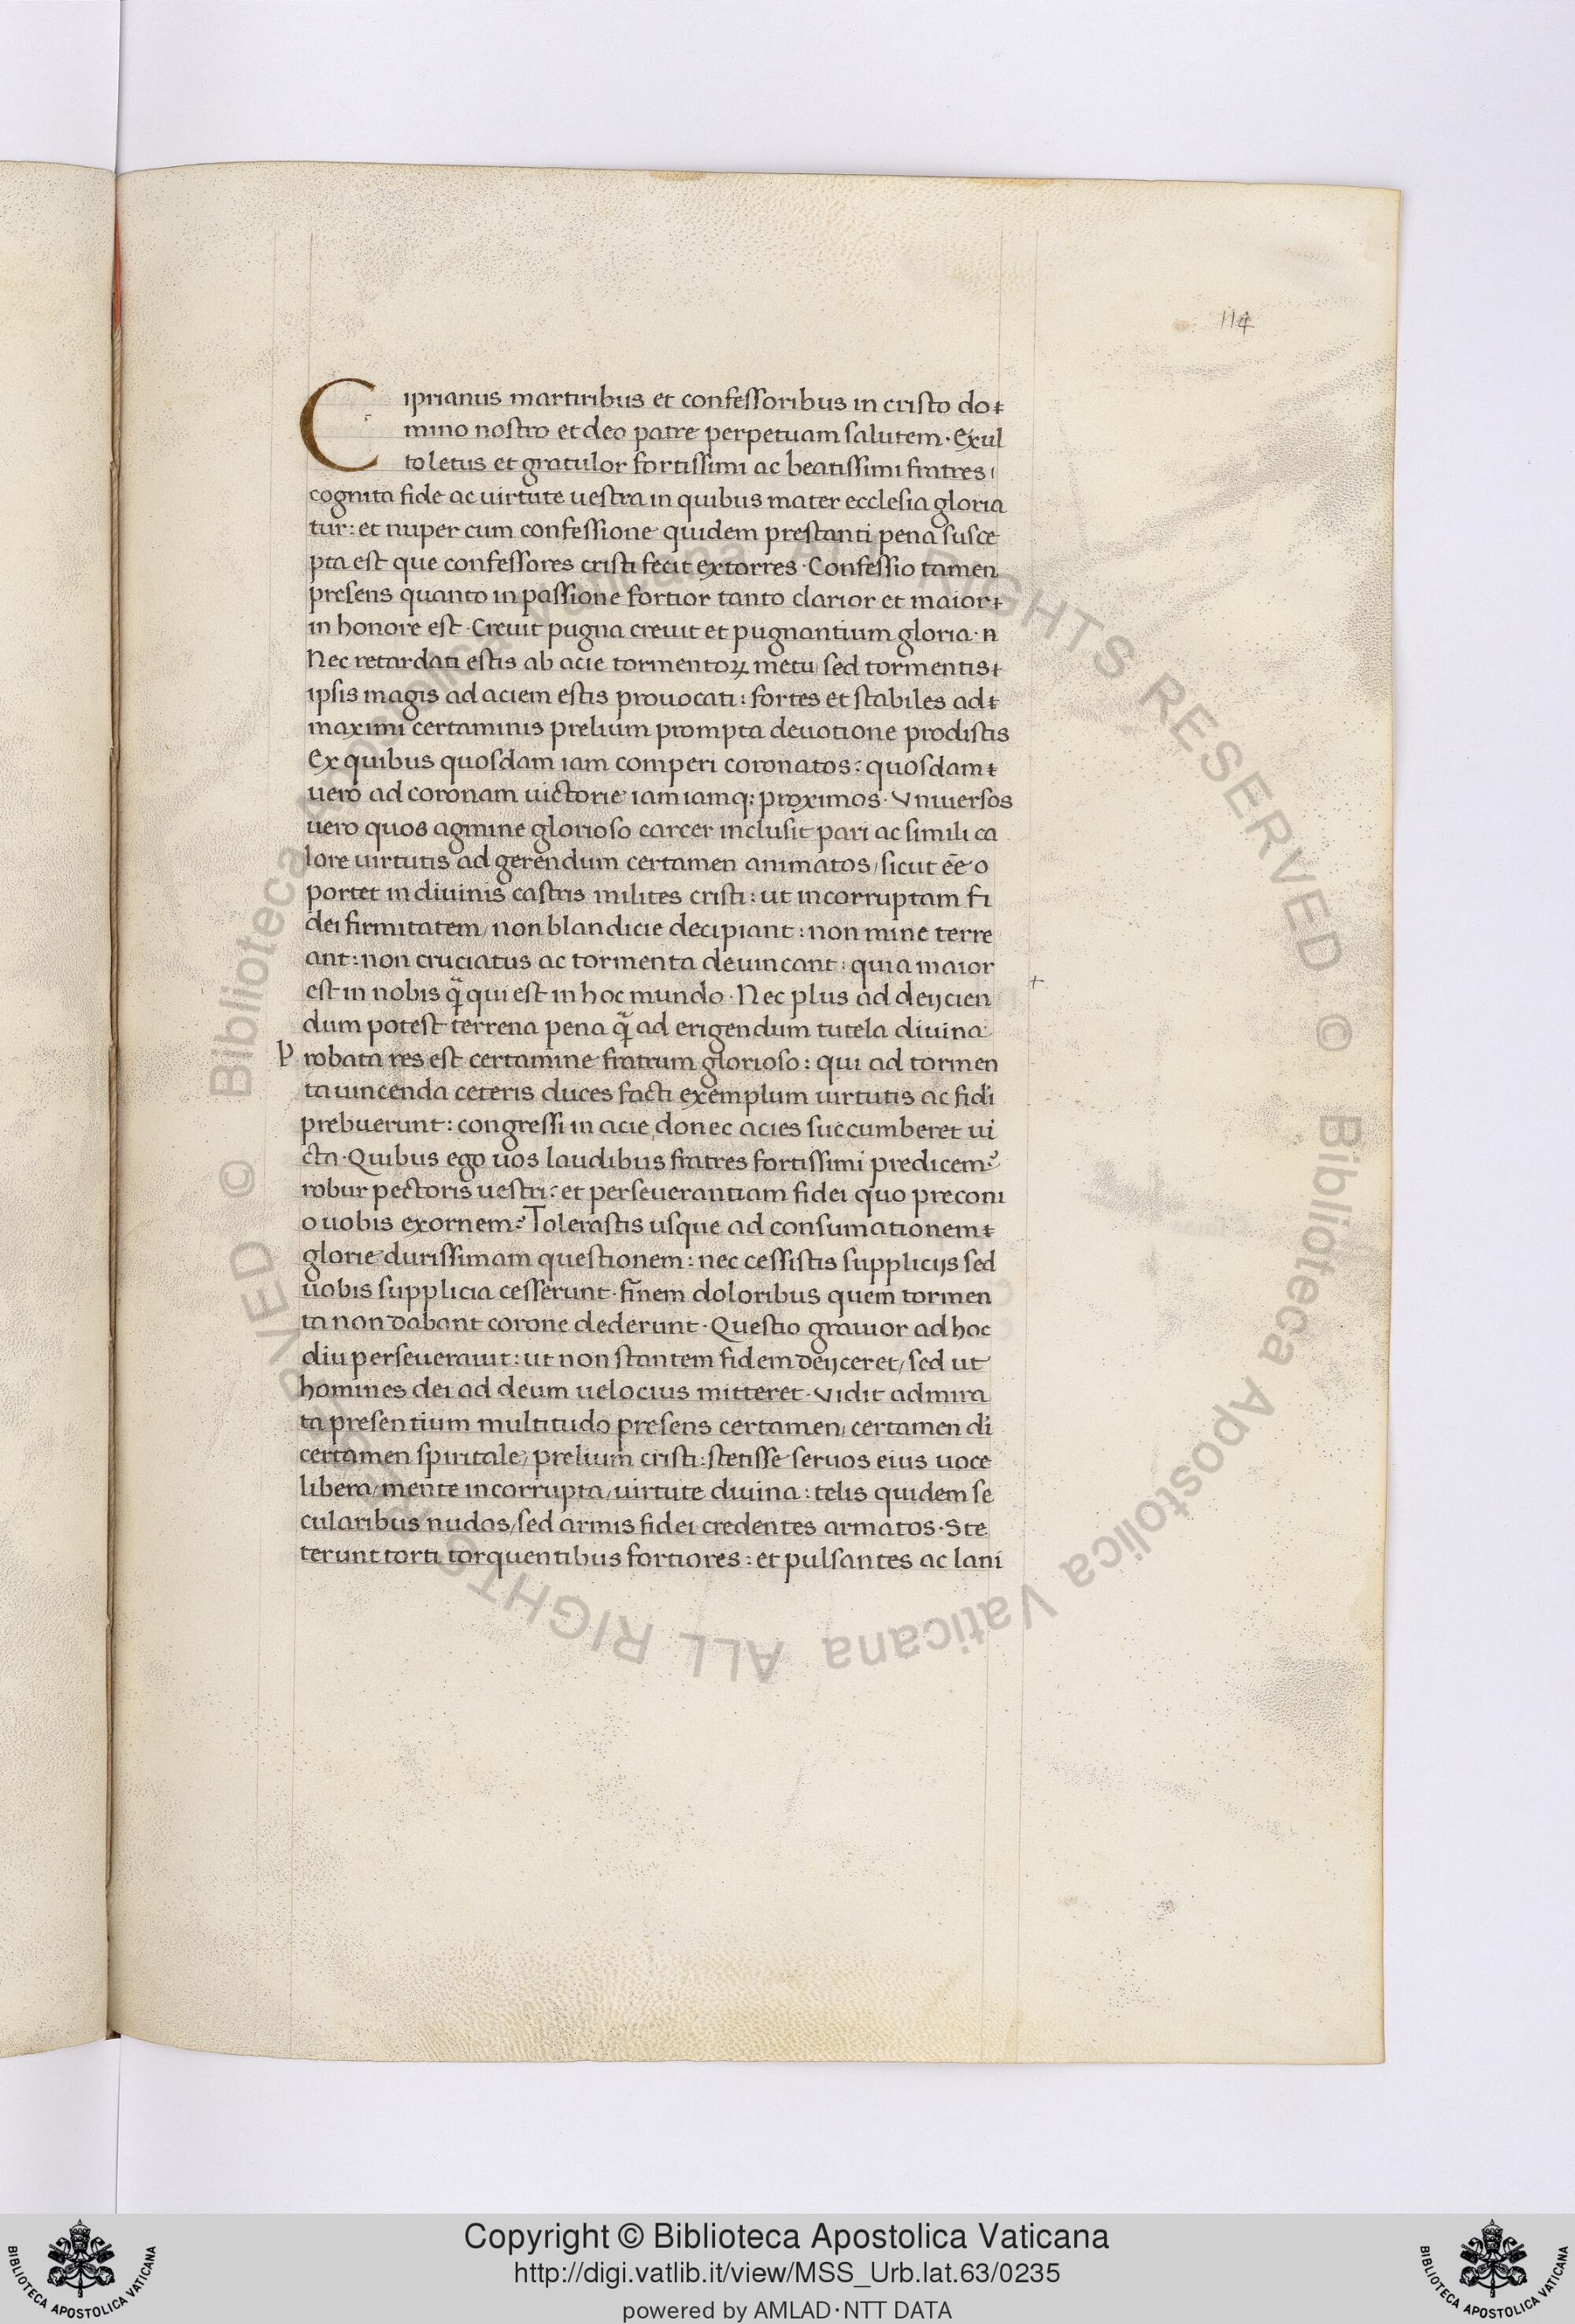 114
Ciprianus martiribus et confessoribus in cristo do
mino nostro et deo patre perpetuam salutem · Exul
to letus et gratulor fortissimi ac beatissimi fratres
cognita fide ac uirtute uestra in quibus mater ecclesia gloria
tur: et nuper cum confessione quidem prestanti pena susce
pta est que confessores cristi fecit extorres · Confessio tamen
presens quanto in passione fortior tanto clarior et maior
in honore est · Creuit pugna creuit et pugnantium gloria · n
Nec retardati estis ab acie tormentoꝝ metu sed tormentis
ipsis magis ad aciem estis prouocati: fortes et stabiles ad
maximi certaminis prelium prompta deuotione prodistis
Ex quibus quosdam iam comperi coronatos: quosdam
uero ad coronam uictorie iam iamq; proximos · Vniuersos
uero quos agmine glorioso carcer inclusit pari ac simili ca
lore uirtutis ad gerendum certamen animatos/ sicut eē o
portet in diuinis castris milites cristi: ut incorruptam fi
dei firmitatem/ non blandicie decipiant: non mine terre
ant: non cruciatus ac tormenta deuincant: quia maior
est in nobis q̃ qui est in hoc mundo · Nec plus ad deijcien
dum potest terrena pena q̃ ad erigendum tutela diuina
Probata res est certamine fratrum glorioso: qui ad tormen
ta uincenda ceteris duces facti exemplum uirtutis ac fidi
prebuerunt: congressi in acie donec acies succumberet ui
cta · Quibus ego uos laudibus fratres fortissimi predicem?
robur pectoris uestri: et perseuerantiam fidei quo preconi
o uobis exornem? Tolerastis usque ad consumationem
glorie durissimam questionem: nec cessistis supplicijs sed
uobis supplicia cesserunt · finem doloribus quem tormen
ta non dabant corone dederunt · Questio grauior ad hoc
diu perseuerauit: ut non stantem fidem deijceret/ sed ut
homines dei ad deum uelocius mitteret · Vidit admira
ta presentium multitudo presens certamen/ certamen di
certamen spiritale/ prelium cristi: stetisse seruos eius uoce
libera/ mente incorrupta/ uirtute diuina: telis quidem se
cularibus nudos/ sed armis fidei credentes armatos · Ste
terunt torti torquentibus fortiores: et pulsantes ac lani
© Biblioteca Apostolica Vaticana ALL RIGHTS RESERVED © Biblioteca Apostolica Vaticana ALL RIGHTS RESERVED
Copyright © Biblioteca Apostolica Vaticana
http://digi.vatlib.it/view/MSS_Urb.lat.63/0235
powered by AMLAD·NTT DATA
BIBLIOTECA APOSTOLICA VATICANA
BIBLIOTECA APOSTOLICA VATICANA